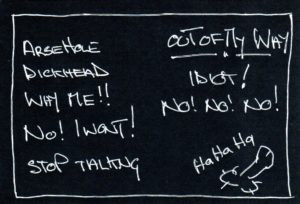 ARSEHOLE
DICKHEAD
WHY ME!!
NO! I WONT!
STOP TALKING
OUT OF MY WAY
IDIOT!
NO! NO! NO!
HaHaHa